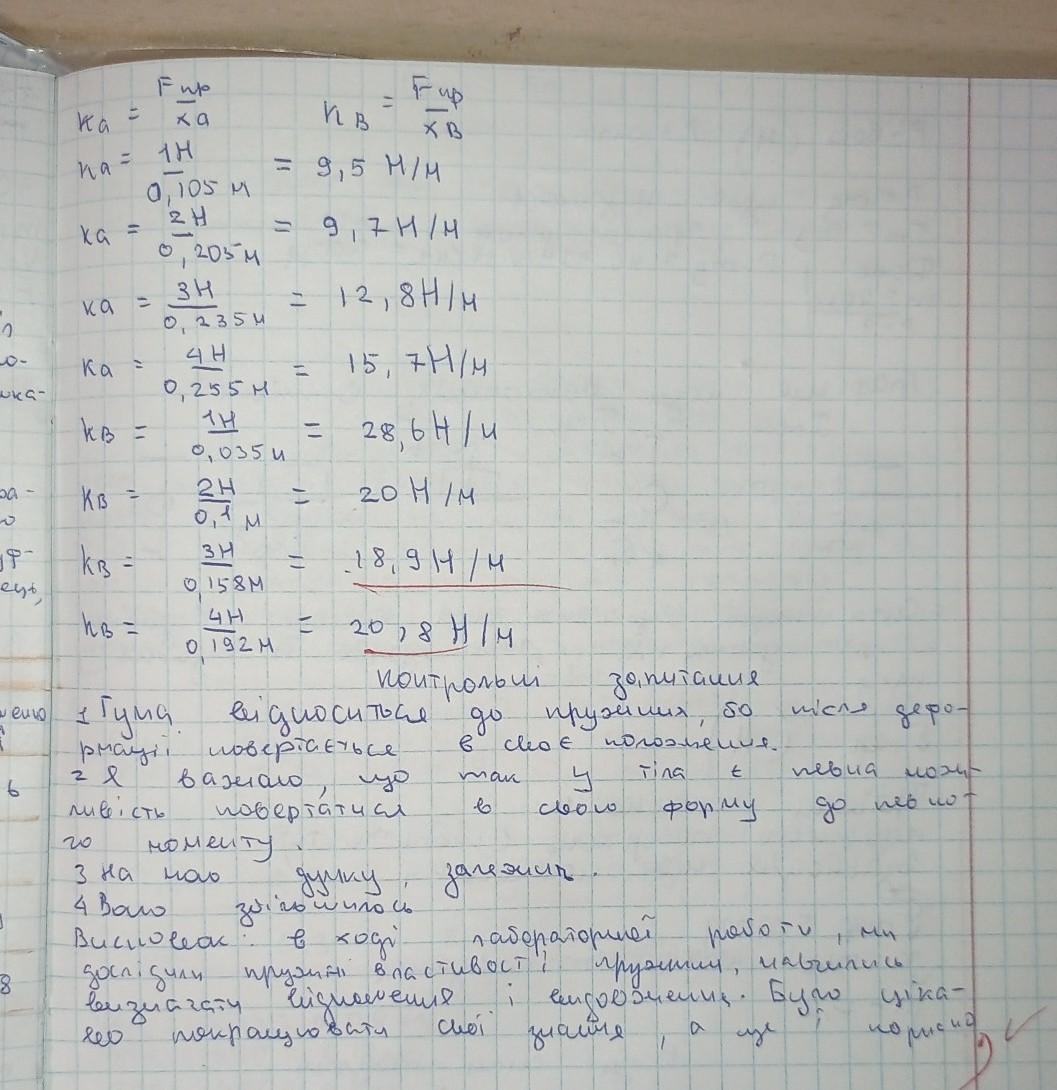 ка = Fпр/xа кВ = Fпр/xВ
ка = 1Н/0,105 м = 9,5 Н/м
ка = 2Н/0,205м = 9,7Н/м
ка = 3Н/0,235м = 12,8Н/м
ка = 4Н/0,255м = 15,7Н/м
кВ = 1Н/0,035м = 28,6Н/м
кВ = 2Н/0,1 м = 20Н/м
кВ = 3Н/0,158м = 18,9Н/м
кВ = 4Н/0,192м = 20,8Н/м
Контрольні запитання
1 Гума відноситься до пружних, бо після дефо-
рмації повертається в своє положення.
2 Я вважаю, що так у тіла є певна можи-
ливість повертатися в свою форму до певно-
го моменту.
3 На мою думку, залежить.
4 Воно збільшилось
Висновок: в ході лабораторної роботи, ми
дослідили пружні властивості пружини, навчились
визначати відношення і видовження. Було ціка-
во покращувати свої знання, а ще і корисно